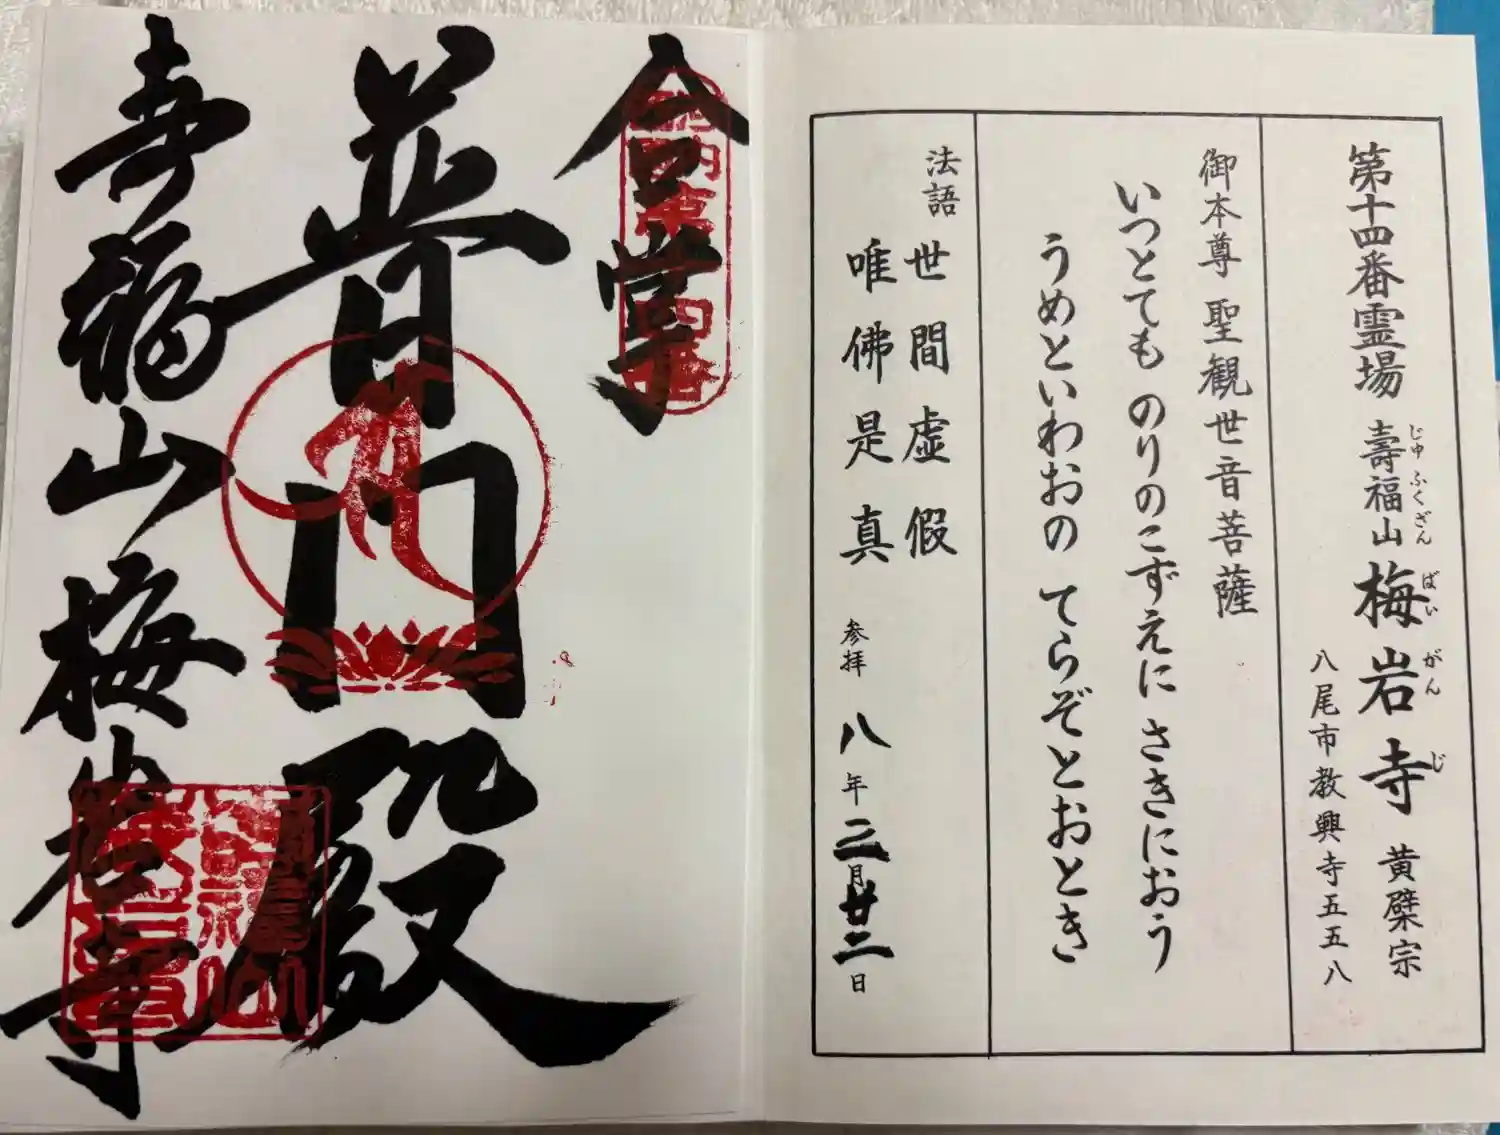 第十四番霊場 壽福山 梅岩寺 黄檗宗
じゅ ふくざん ばい がん じ
八尾市教興寺五五八
御本尊 聖観世音菩薩
いつとても のりのこずえに さきにおう
うめといわおの てらぞとおとき
法語
世間虚假
唯佛是真
参拝 八年二月廿二日
合掌
普門殿
壽福山梅岩寺